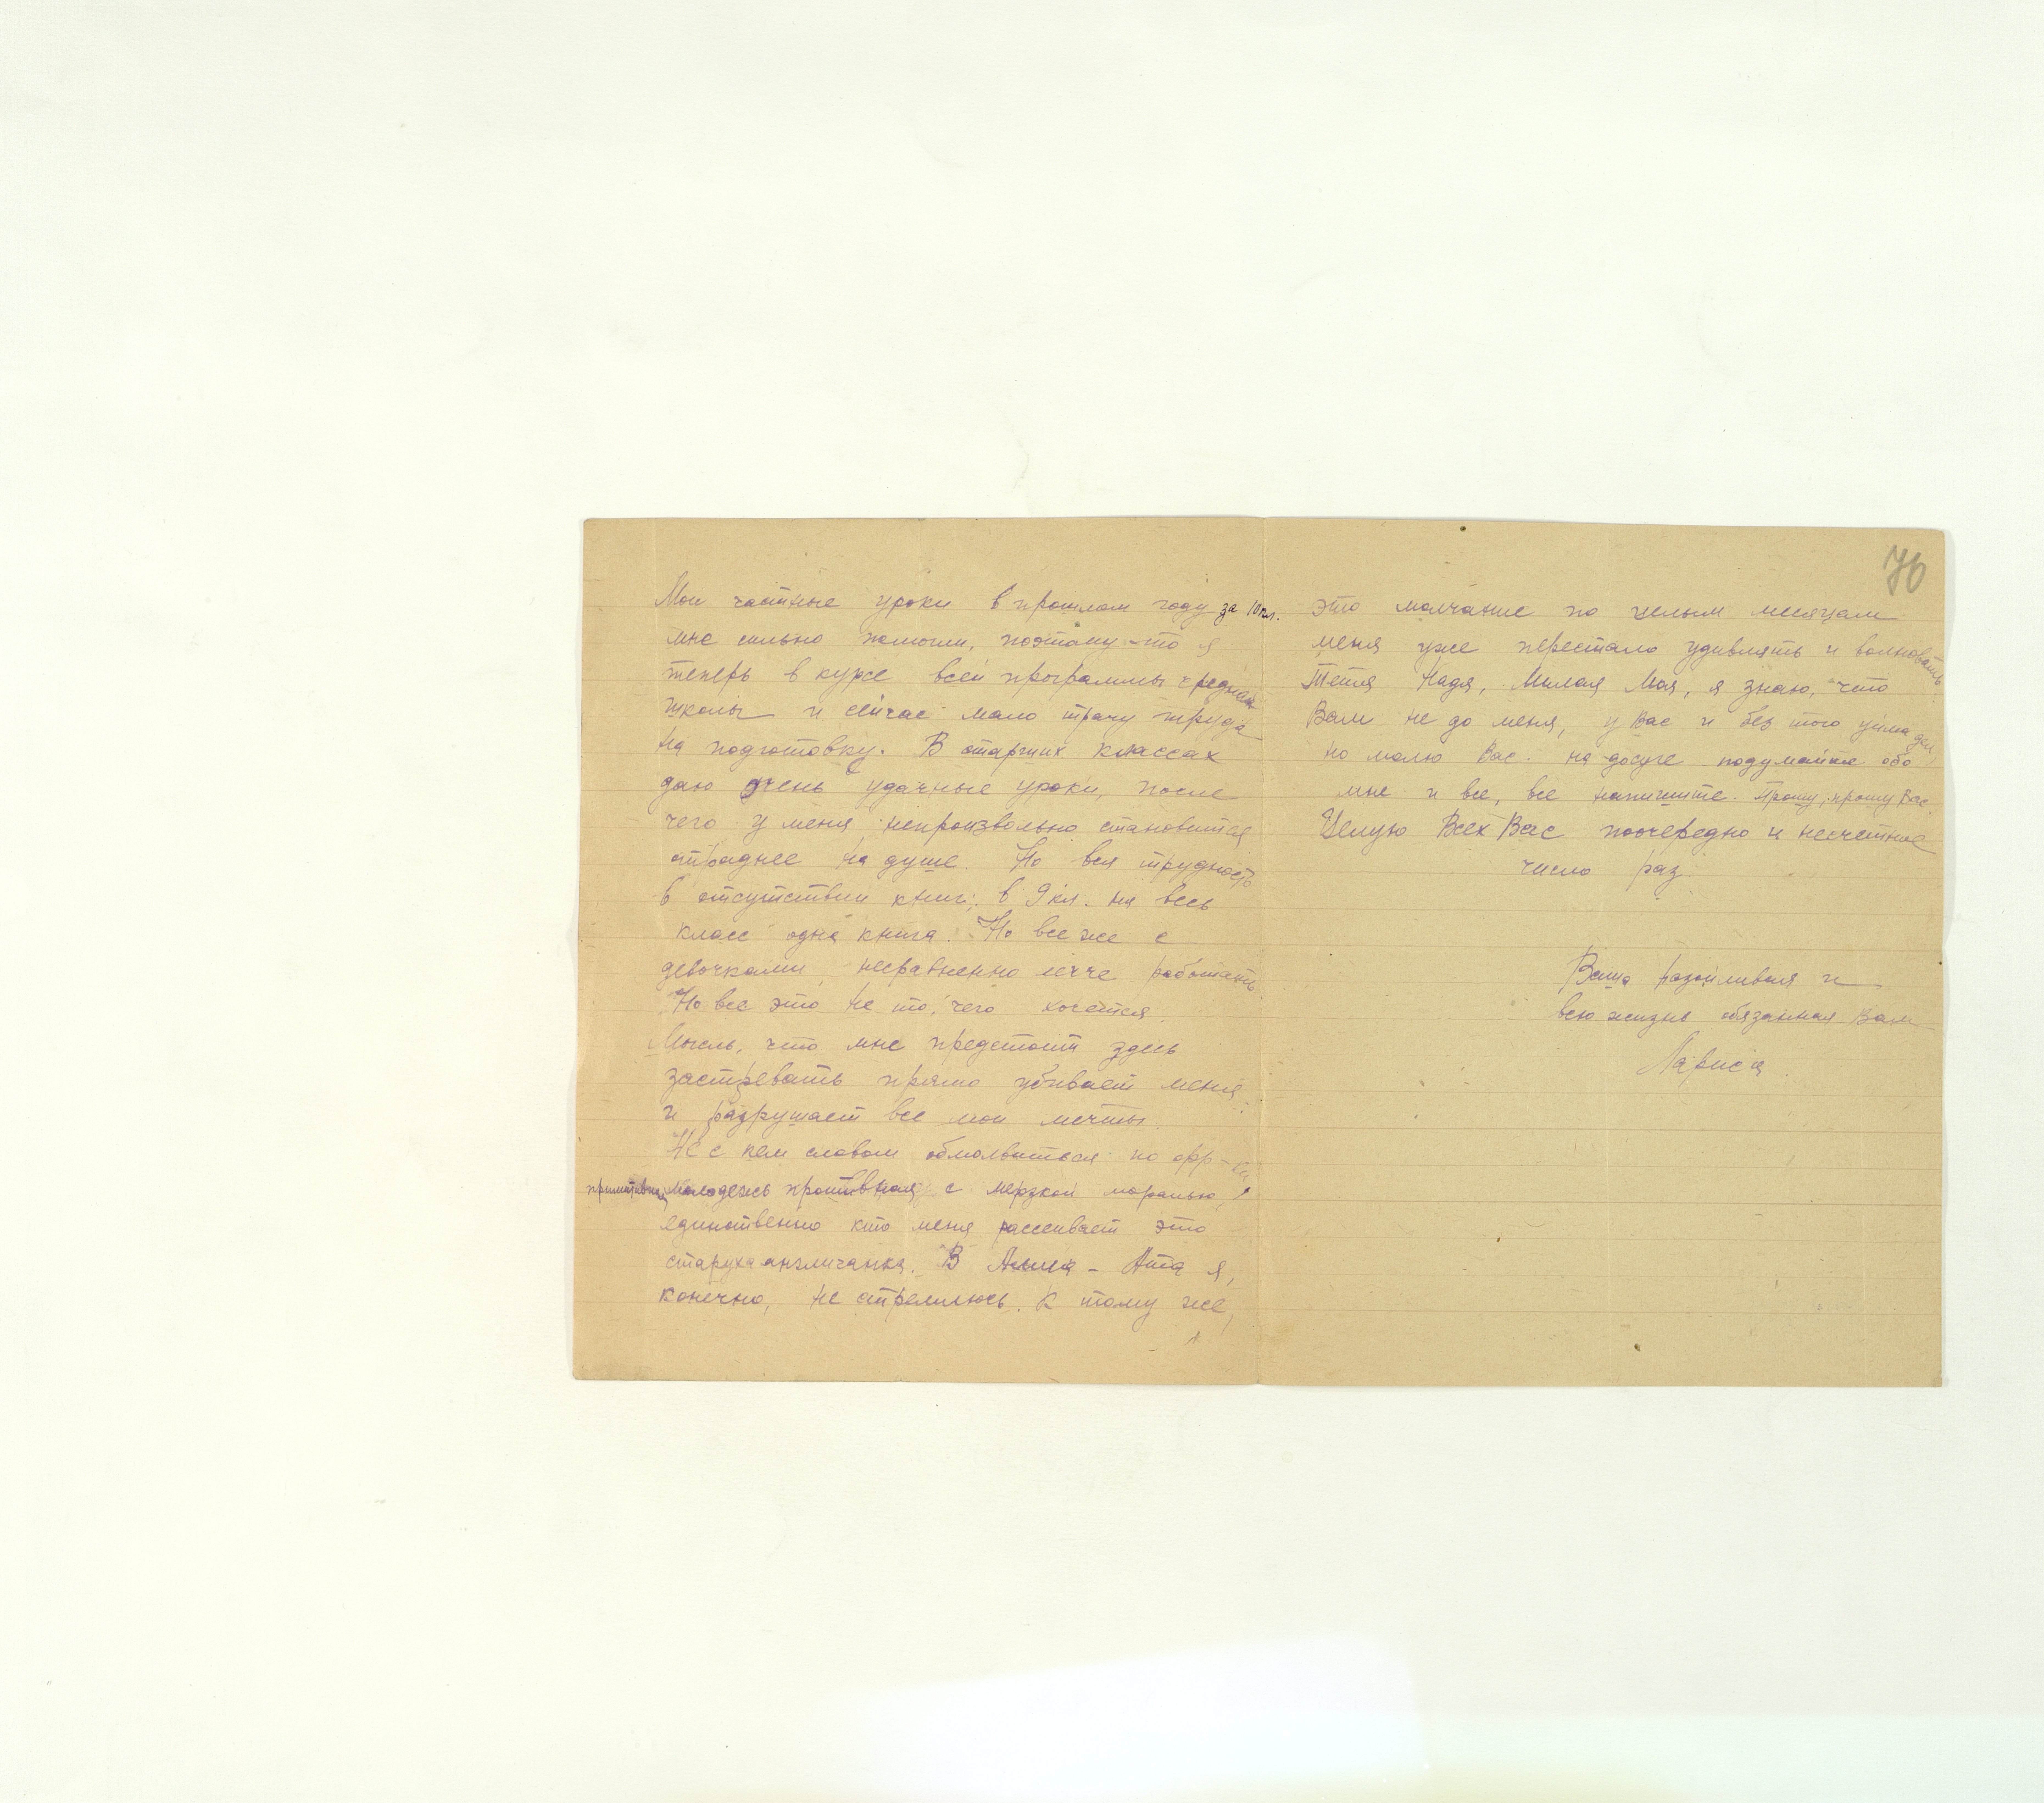 Мои частные уроки в прошлом году за 10 кл.
мне сильно помогли, поэтому-то я
теперь в курсе всей программы средней
школы и сейчас мало трачу труда
на подготовку. В старших классах
даю очень удачные уроки, после
чего у меня непроизвольно становится
отраднее на душе. Но вся трудность
в отсутствии книг; в 9 кл. на весь
класс одна книга. Но все же с
девочками несравненно легче работать.
Но все это не то, чего хочется.
Мысль, что мне предстоит здесь
застревать прямо убивает меня
и разрушает все мои мечты.
Не с кем словом обмолвиться по фр-ски,
примитивная молодежь противная, с мерзкой моралью,
единственно кто меня рассеивает это
старуха англичанка. В Алма-Ата я,
конечно, не стремлюсь. К тому же,
76
это молчание по целым месяцам
меня уже перестало удивлять и волновать
Тетя Надя, Милая Моя, я знаю, что
Вам не до меня, у Вас и без того уйма дел,
но молю Вас на досуге подумайте обо
мне и все, все напишите. Прошу, прошу Вас.
Целую Всех Вас поочередно и несчетное
число раз.
Ваша назойливая и
всю жизнь обязанная Вам
Лариса